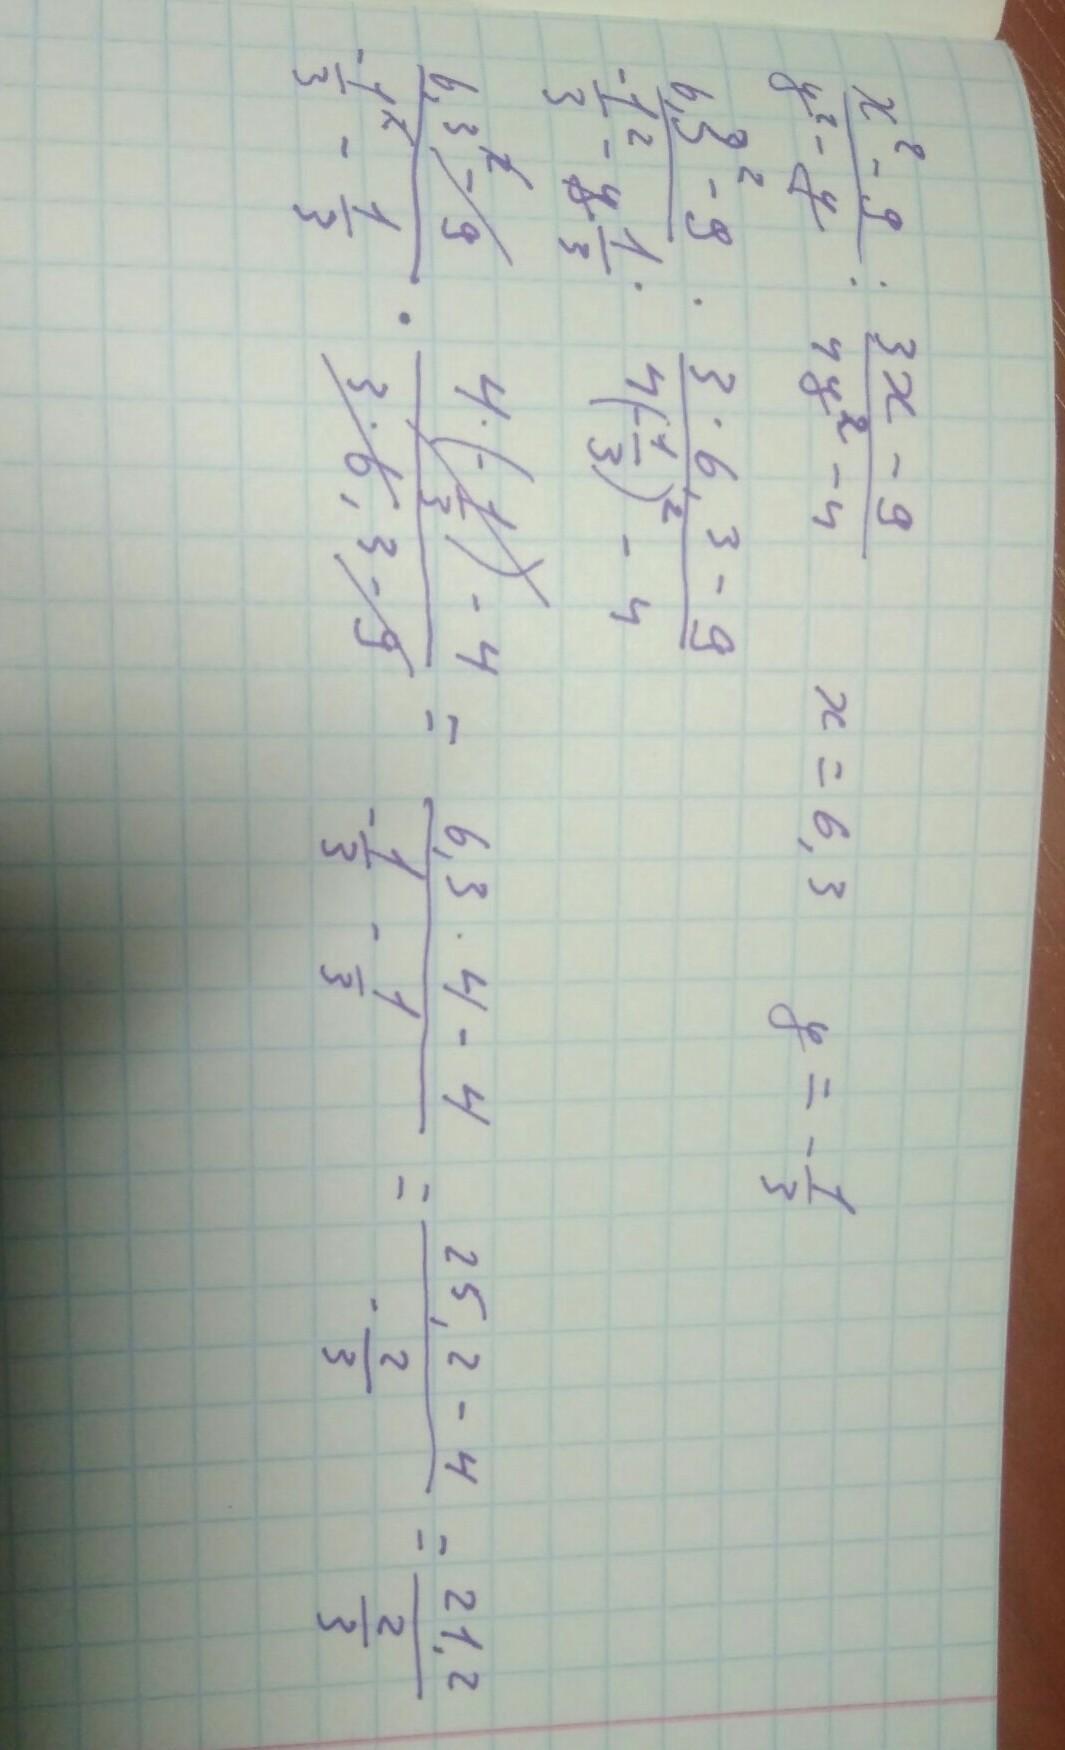 (x² - 9)/(y² - y) : (3x - 9)/(4y² - 4) x = 6,3 y = -1/3
(6,3² - 9)/(-1/3² - 1/3) : (3 · 6,3 - 9)/(4(-1/3)² - 4)
(6,3² - 9)/(-1/3² - 1/3) · (4 · (-1/3) - 4)/(3 · 6,3 - 9) = (6,3 · 4 - 4)/(-1/3 - 1/3) = (25,2 - 4)/(-2/3) = 21,2/(2/3)